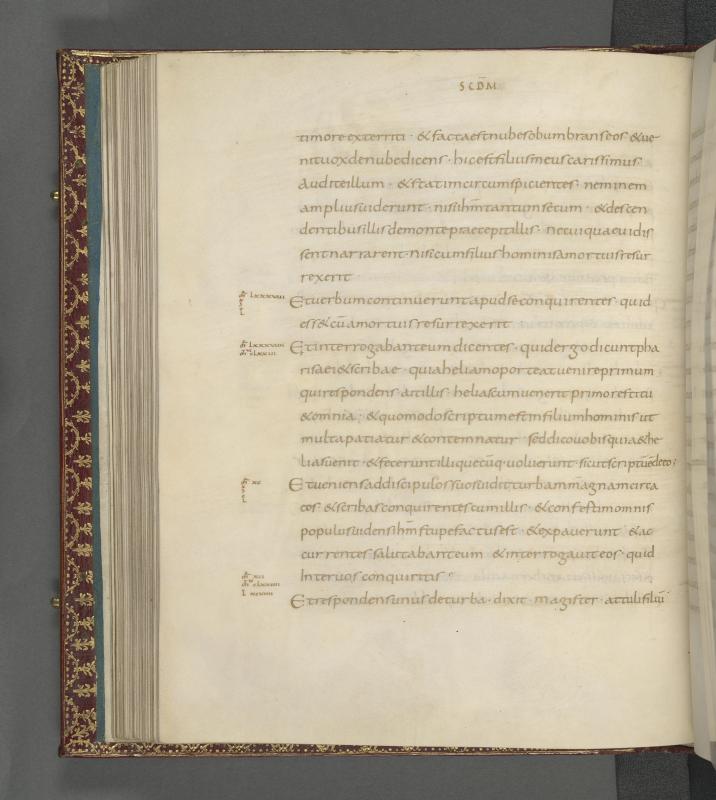 SCDM
timore exterriti · & factaestnubesobumbranseos &ue
nituoxdenubedicens · hicestfiliusmeuscarissimus
Auditeillum · &statimcircumspicientes neminem
ampliusuiderunt · nisiihmtantumsecum · &descen
dentibusillisdemontepraecepitillis · necuiquaeuidis
sentnarrarent · nisicumfiliushominisamortuisresur
rexerit ·
Etuerbumcontinueruntapudseconquirentes · quid
ess&cūamortuisresurrexerit
Etinterrogabanteumdicentes · quidergodicuntpha
risaei&scribae · quiaheliamoporteatuenireprimum
quirespondens aitillis · heliascumuenerit primorestitu
&omnia · &quomodoscriptumestinfiliumhominis ut
multapatiatur &contemnatur seddicouobisquia&he
liasuenit · &feceruntilliquecūq· uoluerunt · sicutscriptūēdeeo ;
Etueniensaddiscipulossuosuiditturbammagnamcirca
eos · &scribasconquirentescumillis · &confestimomnis
populusuidensihm stupefactusest · &expauerunt &ac
currentes salutabanteum &interrogauiteos · quid
Interuos conquiritis
Etrespondensunusdeturba · dixit · magister · attulifiliū